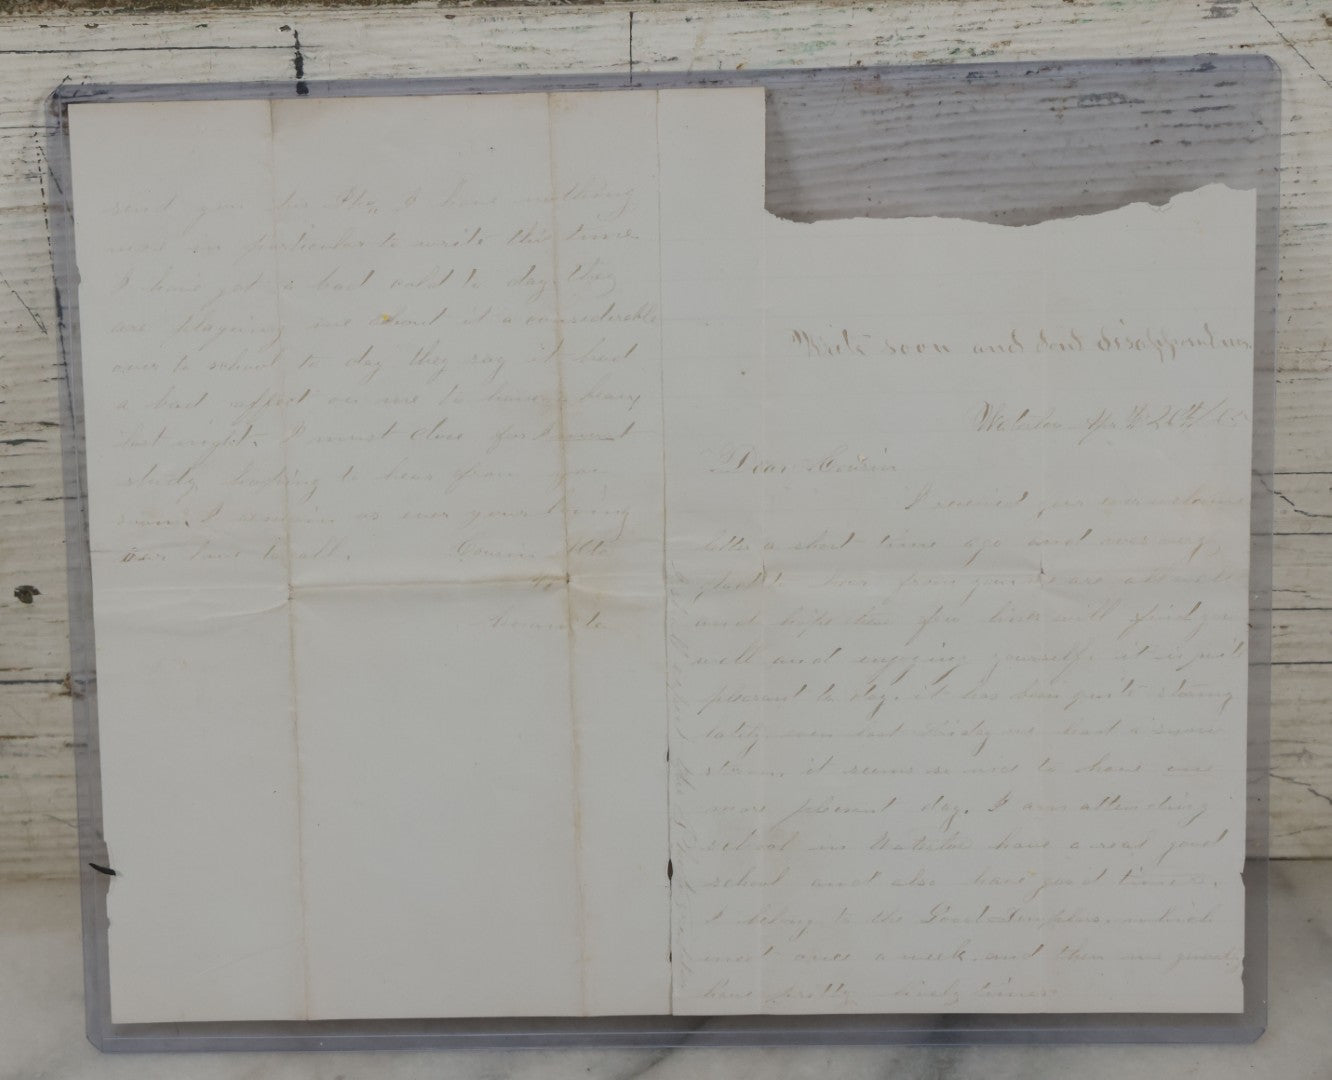 Write soon and dont disappoint me.
Waterloo 26th/65
Dear Cousin
I received your ever welcome
letter a short time ago and was very
glad to hear from you we are all well
and hope these few lines will find you
well and enjoying yourself. it is quite
pleasant to day. it has been quite stormy
lately even last Friday we had a snow
storm. it seems so nice to have one
more plesent day. I am attending
school in Waterloo have a real good
school and also have good times.
I belong to the Good Templars. which
meet once a week. and then we
have pretty lively times
send you his Pho,, I have nothing
more in particular to write this time
I have got a bad cold to day they
are plagueing me about it a considerable
over to school to day they say it had
a bad affect on me to have a beau
last night. I must close for I must
study hopeing to hear from you
soon. I remain as ever your loving
Cousin
our love to all.
To